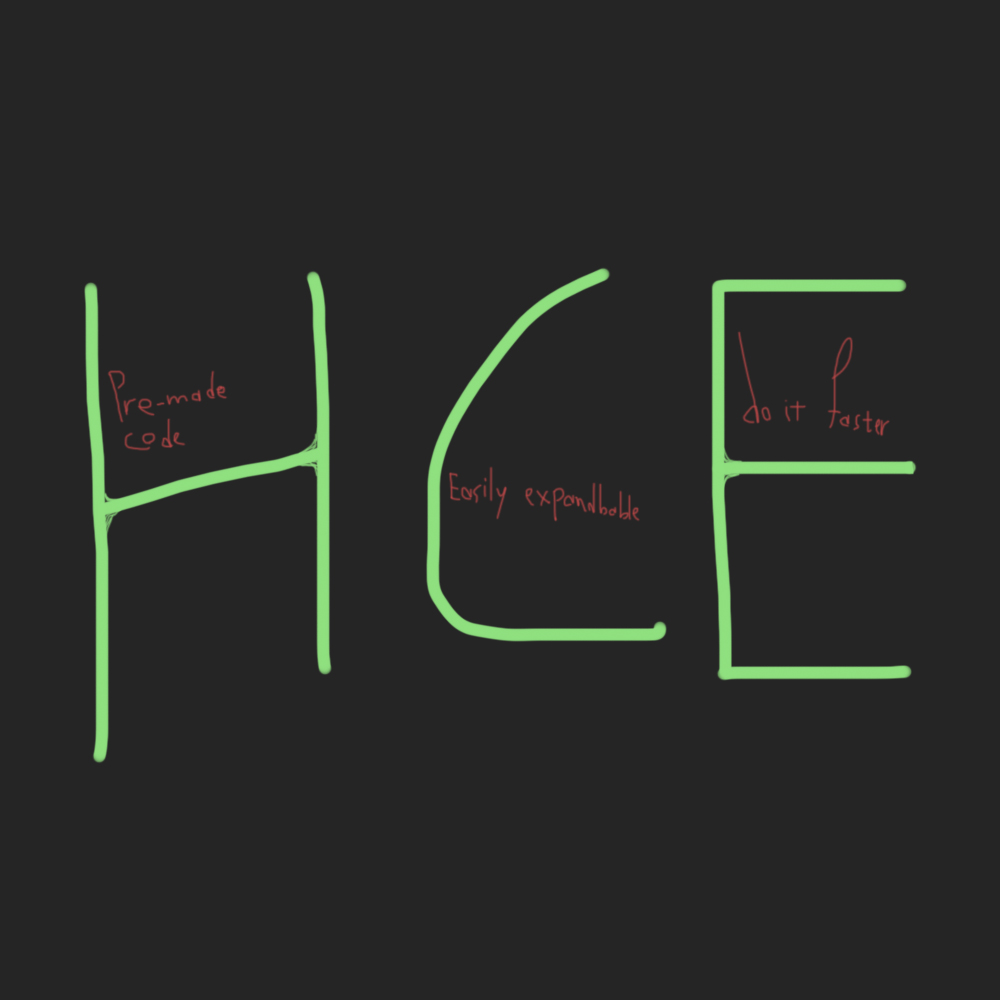 HCE
Pre-made
code
Easily expandbable
do it faster